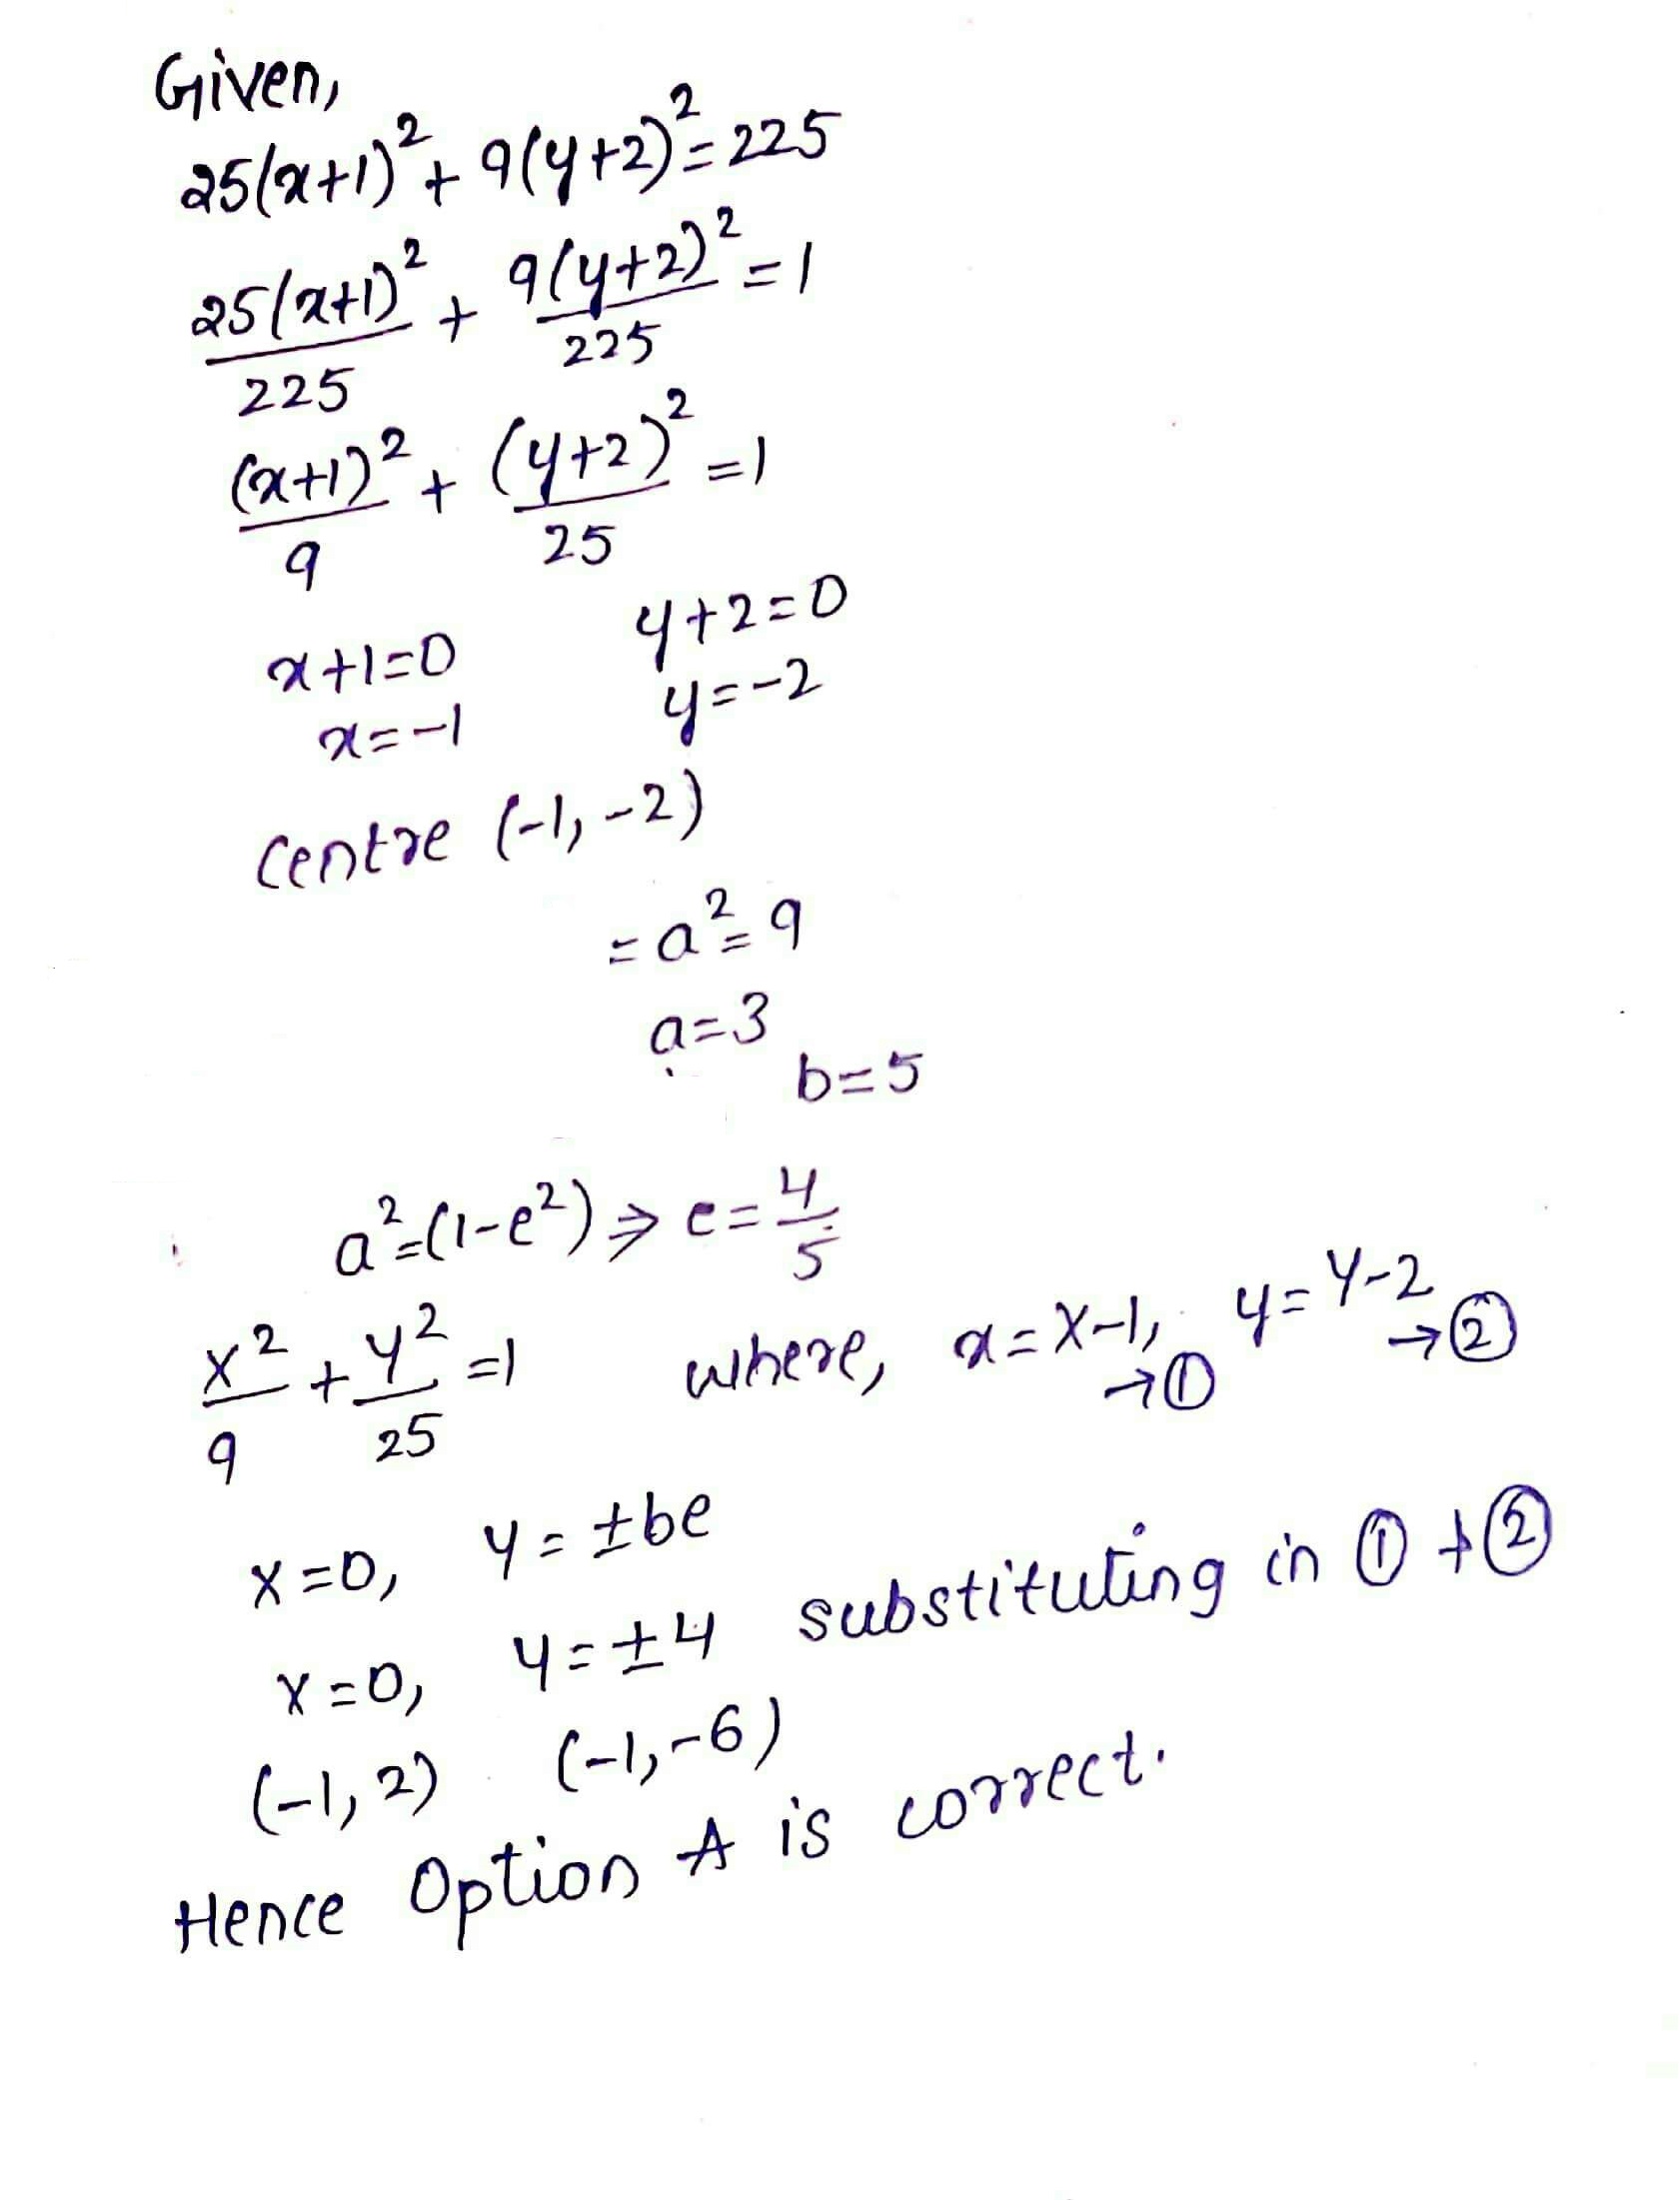 Given,
25(x+1)²+ 9(y+2)²=225
25(x+1)²/225 + 9(y+2)²/225 =1
(x+1)²/9 + (y+2)²/25 =1
x+1=0 y+2=0
x=-1 y=-2
centre (-1,-2)
=a²=9
a=3
b=5
a²=(1-e²)⇒ e=4/5
X²/9 + Y²/25 =1 where, x=X-1, →① y=Y-2 →②
X=0, Y=±be
X=0, Y=±4 substituting in ① + ②
(-1,2) (-1,-6)
Hence Option A is correct.